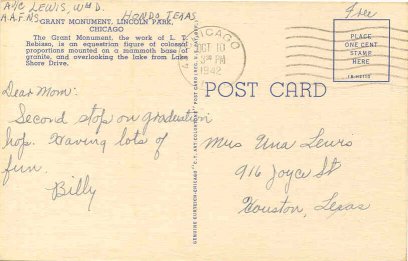 A/C LEWIS, Wm D.
A.A.F.N.S. HONDO TEXAS
GRANT MONUMENT, LINCOLN PARK,
CHICAGO
The Grant Monument, the work of L. T.
Rebisso, is an equestrian figure of colossal
proportions mounted on a mammoth base of
granite, and overlooking the lake from Lake
Shore Drive.
Free
CHICAGO
OCT 10
PM
1942
PLACE
ONE CENT
STAMP
HERE
POST CARD
Dear Mom:
Second stop on graduation
hop. Having lots of
fun.
Billy
GENUINE CURTEICH-CHICAGO "C.T. ART-COLORTONE" POST CARD (REG. U.S. PAT. OFF.)
Mrs Una Lewis
916 Joyce St
Houston, Texas